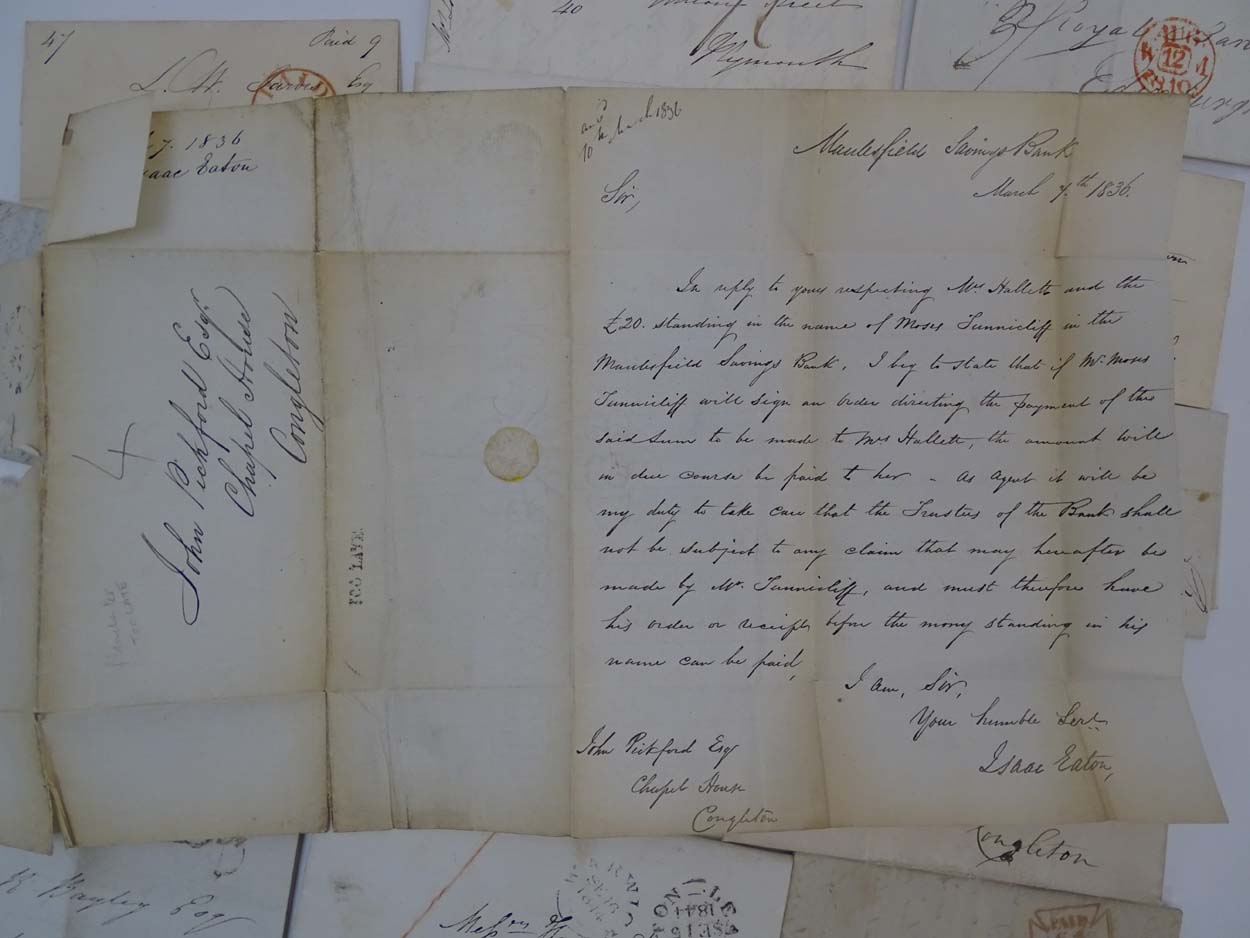 47
Paid 9
L. W. Jarvis Esq
PAID
40
Street
Plymouth
Royal
AUG
12
1836
Isaac Eaton
10th March 1836
Macclesfield Savings Bank
March 7.th 1836.
Sir,
In reply to yours respecting Mrs Hallett and the
£20. standing in the name of Moses Tunnicliff in the
Macclesfield Savings Bank, I beg to state that if Mr Moses
Tunnicliff will sign an order directing the payment of the
said sum to be made to Mrs Hallett, the amount will
in due course be paid to her - As Agent it will be
my duty to take care that the Trustees of the Bank shall
not be subject to any claim that may hereafter be
made by Mr. Tunnicliff, and must therefore have
his order or receipt before the mony standing in his
name can be paid,
I am, Sir,
Your humble Servt.
Isaac Eaton,
John Pickford Esqr
Chapel House
Congleton
4
John Pickford Esqr.
Chapel House
Congleton
TOO LATE
Congleton
Bagley Esq
Messrs
WARWICK
1841
PAID